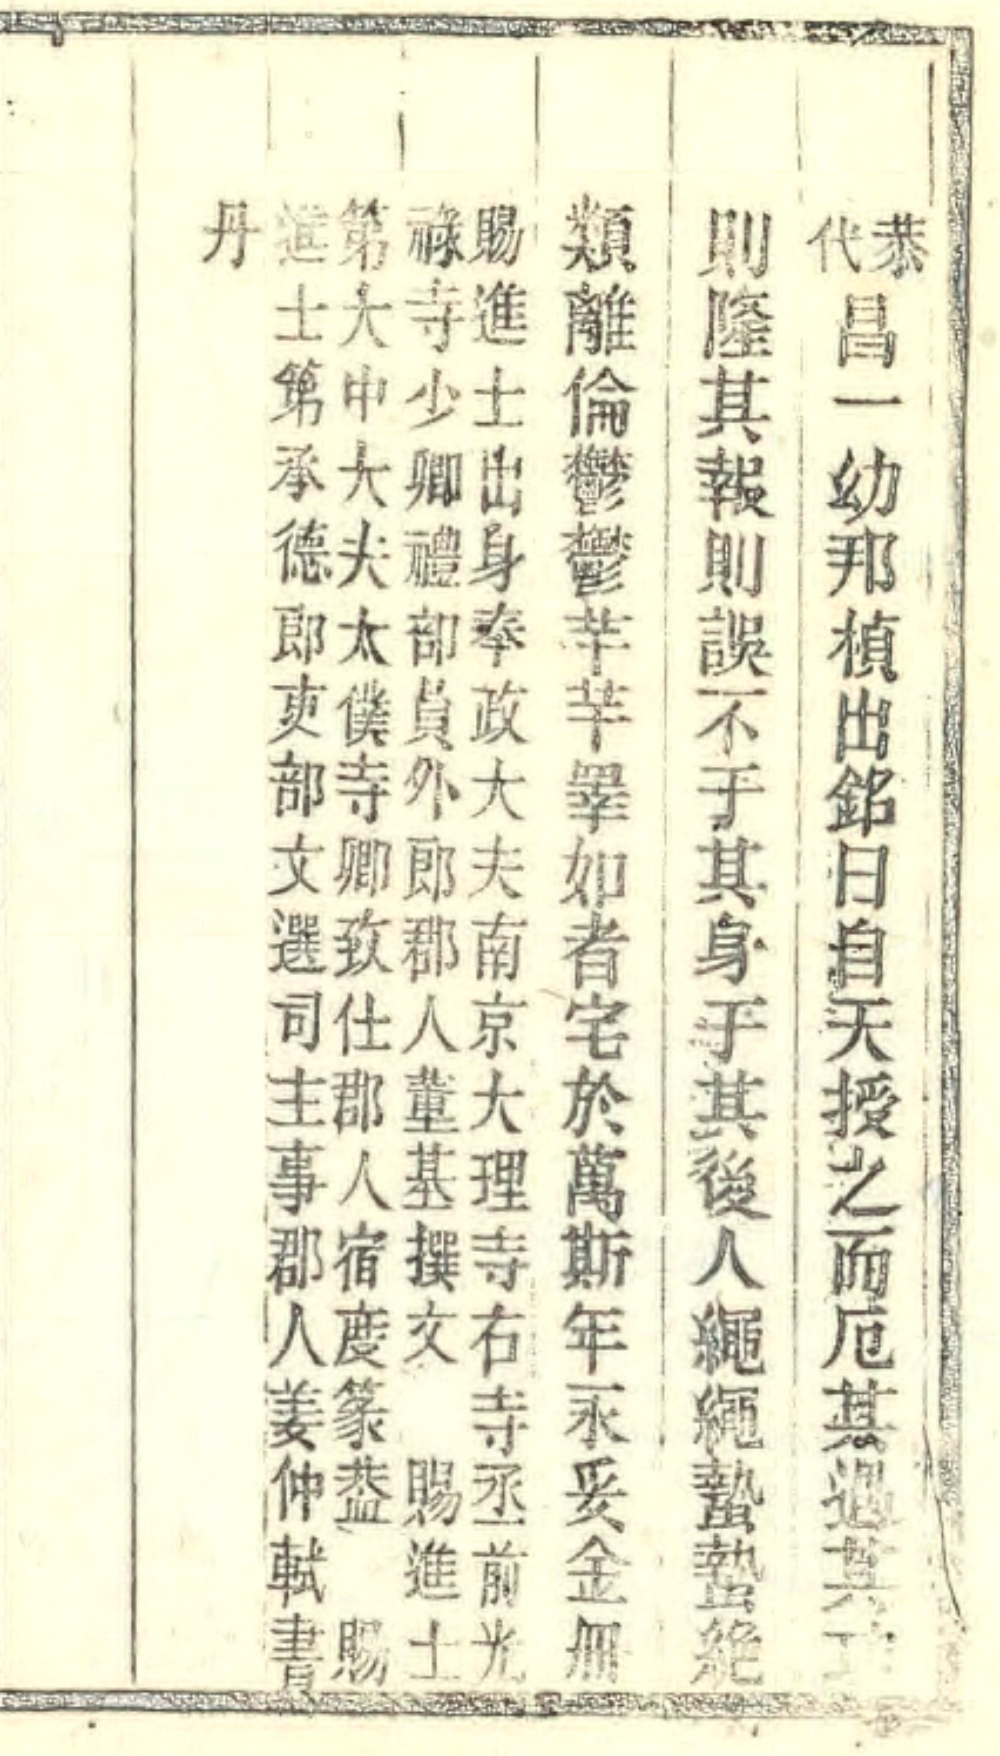 恭代昌一幼邦楨出銘曰自天授之而厄其遇其
則隆其報則誤不于其身于其後人繩繩蟄蟄絶
類離倫鬱鬱芊芊睪如者宅於萬斯年永妥金無
賜進士出身奉政大夫南京大理寺右寺丞前光
祿寺少卿禮部員外郎郡人董基撰文 賜進士
第大中大夫太僕寺卿致仕郡人宿度篆葢 賜
進士第承德郎吏部文選司主事郡人姜仲軾書
丹